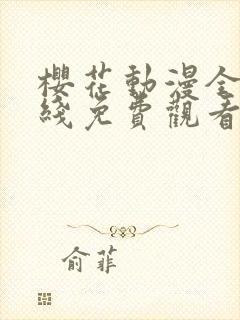 櫻花動漫全
綫免費觀看
俞菲